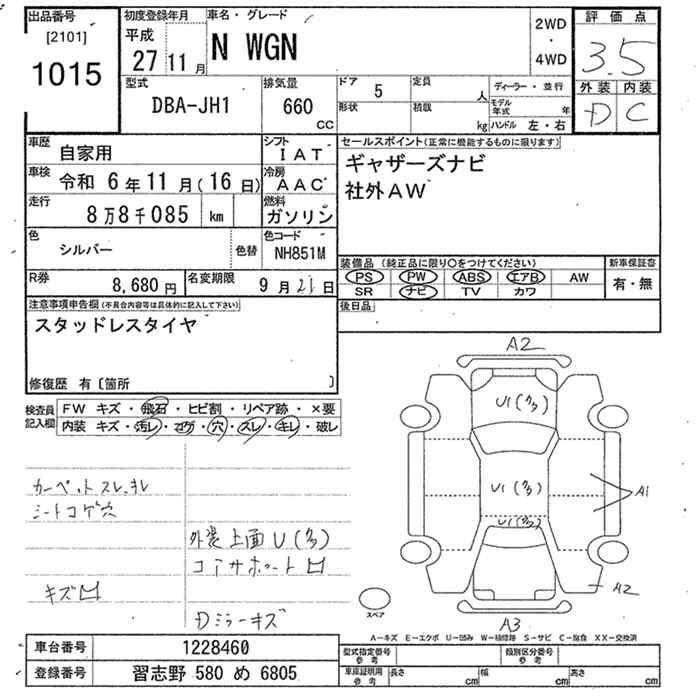 出品番号
[2101]
1015
初度登録年月
平成
27 11 月
車名・グレード
N WGN
2WD
・
4WD
評価点
3.5
外装 内装
D C
型式
DBA-JH1
排気量
660
cc
ドア 5
形状
定員
人
積載
kg
ディーラー・並行
モデル年式 年
ハンドル 左・右
車歴
自家用
シフト
IAT
車検 令和 6年11月(16日)
冷房
AAC
走行
8万8千085 km
燃料
ガソリン
色
シルバー
色替
色コード
NH851M
R券
8,680円
名変期限
9月 21日
セールスポイント(正常に機能するものに限ります)
ギャザーズナビ
社外AW
装備品(純正品に限り○をつけてください)
PS PW ABS エアB AW
SR ナビ TV カワ
新車保証書
有・無
後日品
注意事項申告欄(不具合内容等は具体的に記入して下さい)
スタッドレスタイヤ
修復歴 有〔箇所 〕
検査員
記入欄
FW キズ・飛石・ヒビ割・リペア跡・×要
内装 キズ・汚レ・コゲ・穴・スレ・キレ・破レ
カーペットスレ、キレ
シートコゲ穴
外装上面U(多)
コアサポート凹
キズ凹
Dミラーキズ
A2
U1(多)
U1(多)
U1(多)
A1
A2
A3
スペア
A-キズ E-エクボ U-凹み W-補修跡 S-サビ C-腐食 XX-交換済
車台番号 1228460
登録番号 習志野 580 め 6805
型式指定番号
参考
類別区分番号
参考
車庫証明用
参考
長さ cm
幅 cm
高さ cm